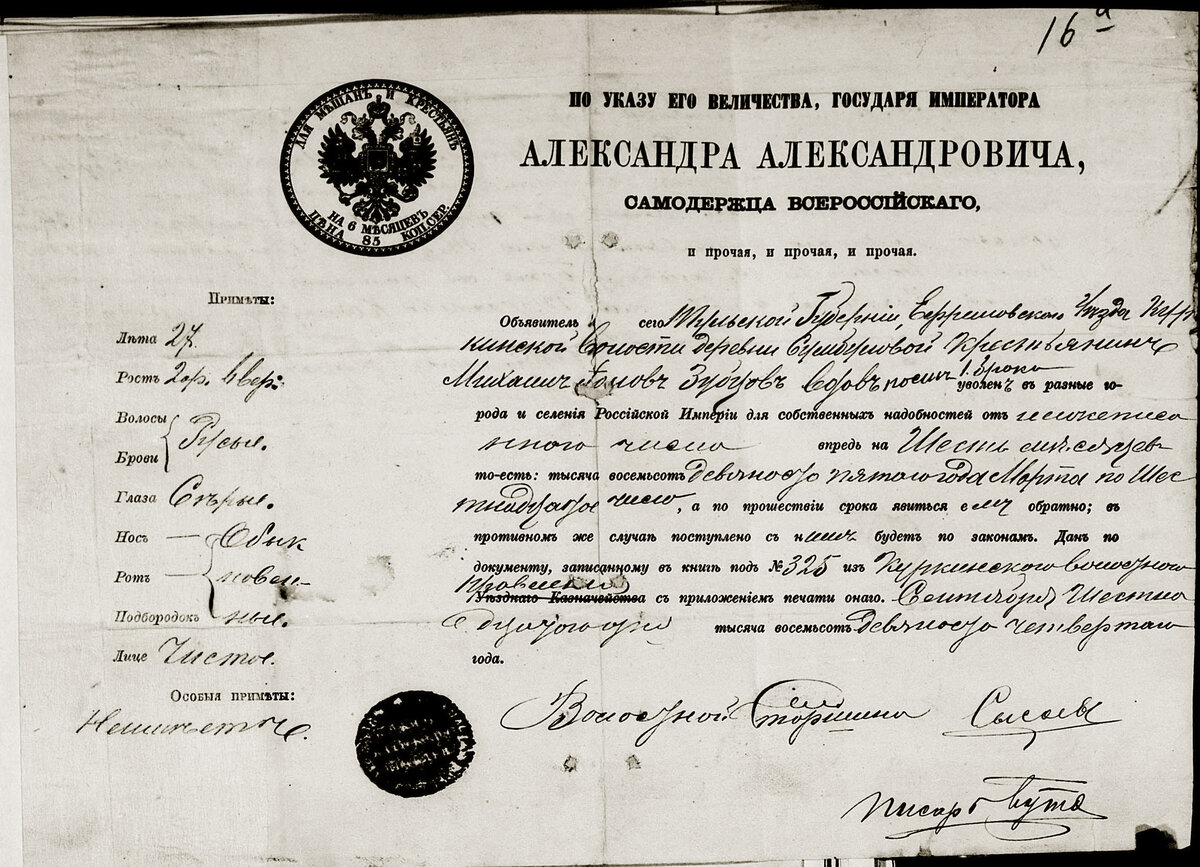 16 а
ПО УКАЗУ ЕГО ВЕЛИЧЕСТВА, ГОСУДАРЯ ИМПЕРАТОРА
АЛЕКСАНДРА АЛЕКСАНДРОВИЧА,
САМОДЕРЖЦА ВСЕРОССІЙСКАГО,
и прочая, и прочая, и прочая.
ДЛЯ МѢЩАНЪ И КРЕСТЬЯНЪ
НА 6 МѢСЯЦЕВЪ
ЦѢНА 85 КОП.СЕР.
Примѣты:
Лѣта 27.
Ростъ 2 ар. 6 вер:
Волосы
Брови
Русые.
Глаза Сѣрые.
Носъ — Обык
Ротъ — новен-
Подбородокъ ные.
Лице Чистое.
Особыя примѣты:
Неимѣетъ.
Объявитель сего Тульской Губерніи, Ефремовскаго Уѣзда
кинской Волости деревни Крестьянинъ
Михаилъ Зубцовъ Вдовъ послѣ 1 брака уволенъ въ разные го-
рода и селенія Россійской Имперіи для собственныхъ надобностей отъ нижеписа
ннаго числа впредь на Шесть мѣсяцевъ
то-есть: тысяча восемьсотъ Девяносто пятаго года Марта по Шес
тнадцатое число, а по прошествіи срока явиться ему обратно; въ
противномъ же случаѣ поступлено съ нимъ будетъ по законамъ. Данъ по
документу, записанному въ книгѣ подъ № 325 изъ Куркинскаго волостного
Правленія
Уѣзднаго Казначейства съ приложеніемъ печати онаго. Сентября Шестна
дцатого дня тысяча восемьсотъ Девяносто четвертаго
года.
Волостной Старшина
Писарь